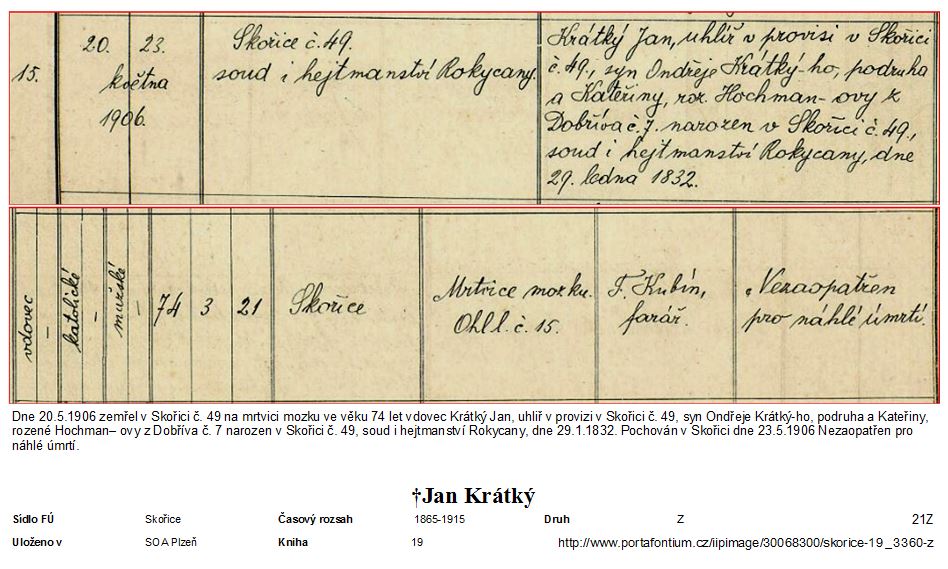 15.
20. 23.
května
1906.
Skořice č. 49.
soud i hejtmanství Rokycany.
Krátký Jan, uhlíř v provisi v Skořici
č. 49., syn Ondřeje Krátký-ho, podruha
a Kateřiny, roz. Hochman- ovy z
Dobříva č. 7. narozen v Skořici č. 49.,
soud i hejtmanství Rokycany, dne
29. ledna 1832.
vdovec
–
katolické
–
mužské
–
74
3
21
Skořice
Mrtvice mozku.
Ohl l. č. 15.
F. Kubín,
farář.
Nezaopatřen
pro náhlé úmrtí.
Dne 20.5.1906 zemřel v Skořici č. 49 na mrtvici mozku ve věku 74 let vdovec Krátký Jan, uhlíř v provizi v Skořici č. 49, syn Ondřeje Krátký-ho, podruha a Kateřiny,
rozené Hochman– ovy z Dobříva č. 7 narozen v Skořici č. 49, soud i hejtmanství Rokycany, dne 29.1.1832. Pochován v Skořici dne 23.5.1906 Nezaopatřen pro
náhlé úmrtí.
†Jan Krátký
Sídlo FÚ Skořice Časový rozsah 1865-1915 Druh Z 21Z
Uloženo v SOA Plzeň Kniha 19 http://www.portafontium.cz/iipimage/30068300/skorice-19_3360-z